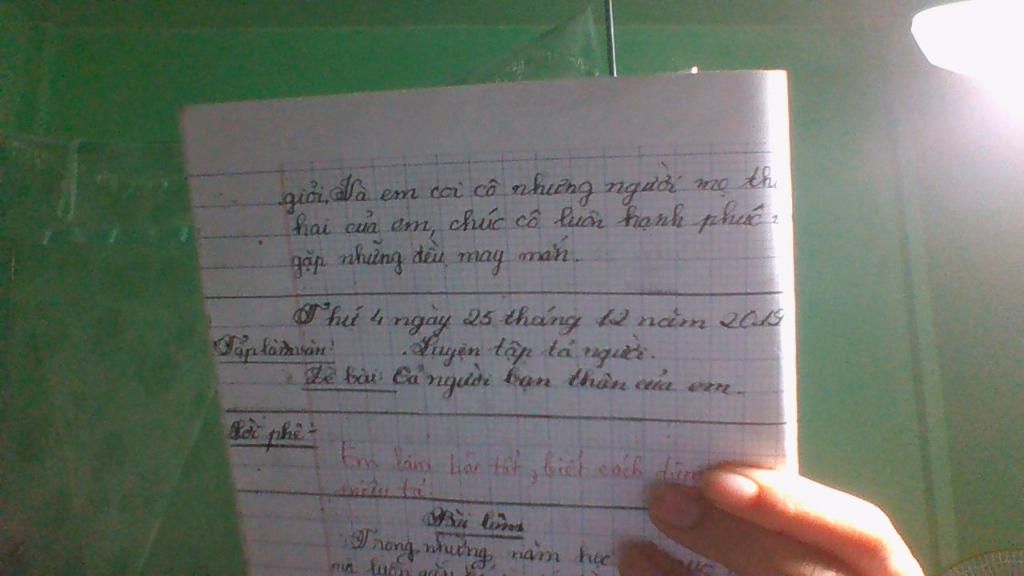 giỏi, Và em coi cô những người mẹ
hai của em, chúc cô luôn hạnh phúc
gặp những đều may mắn.
Thứ 4 ngày 25 tháng 12 năm 2019
Tập làm văn: Luyện tập tả người.
Đề bài: Cả người bạn thân của em.
Lời phê:
Em làm bài tốt, biết cách
miêu tả.
Bài làm
Trong những năm học
mà luôn